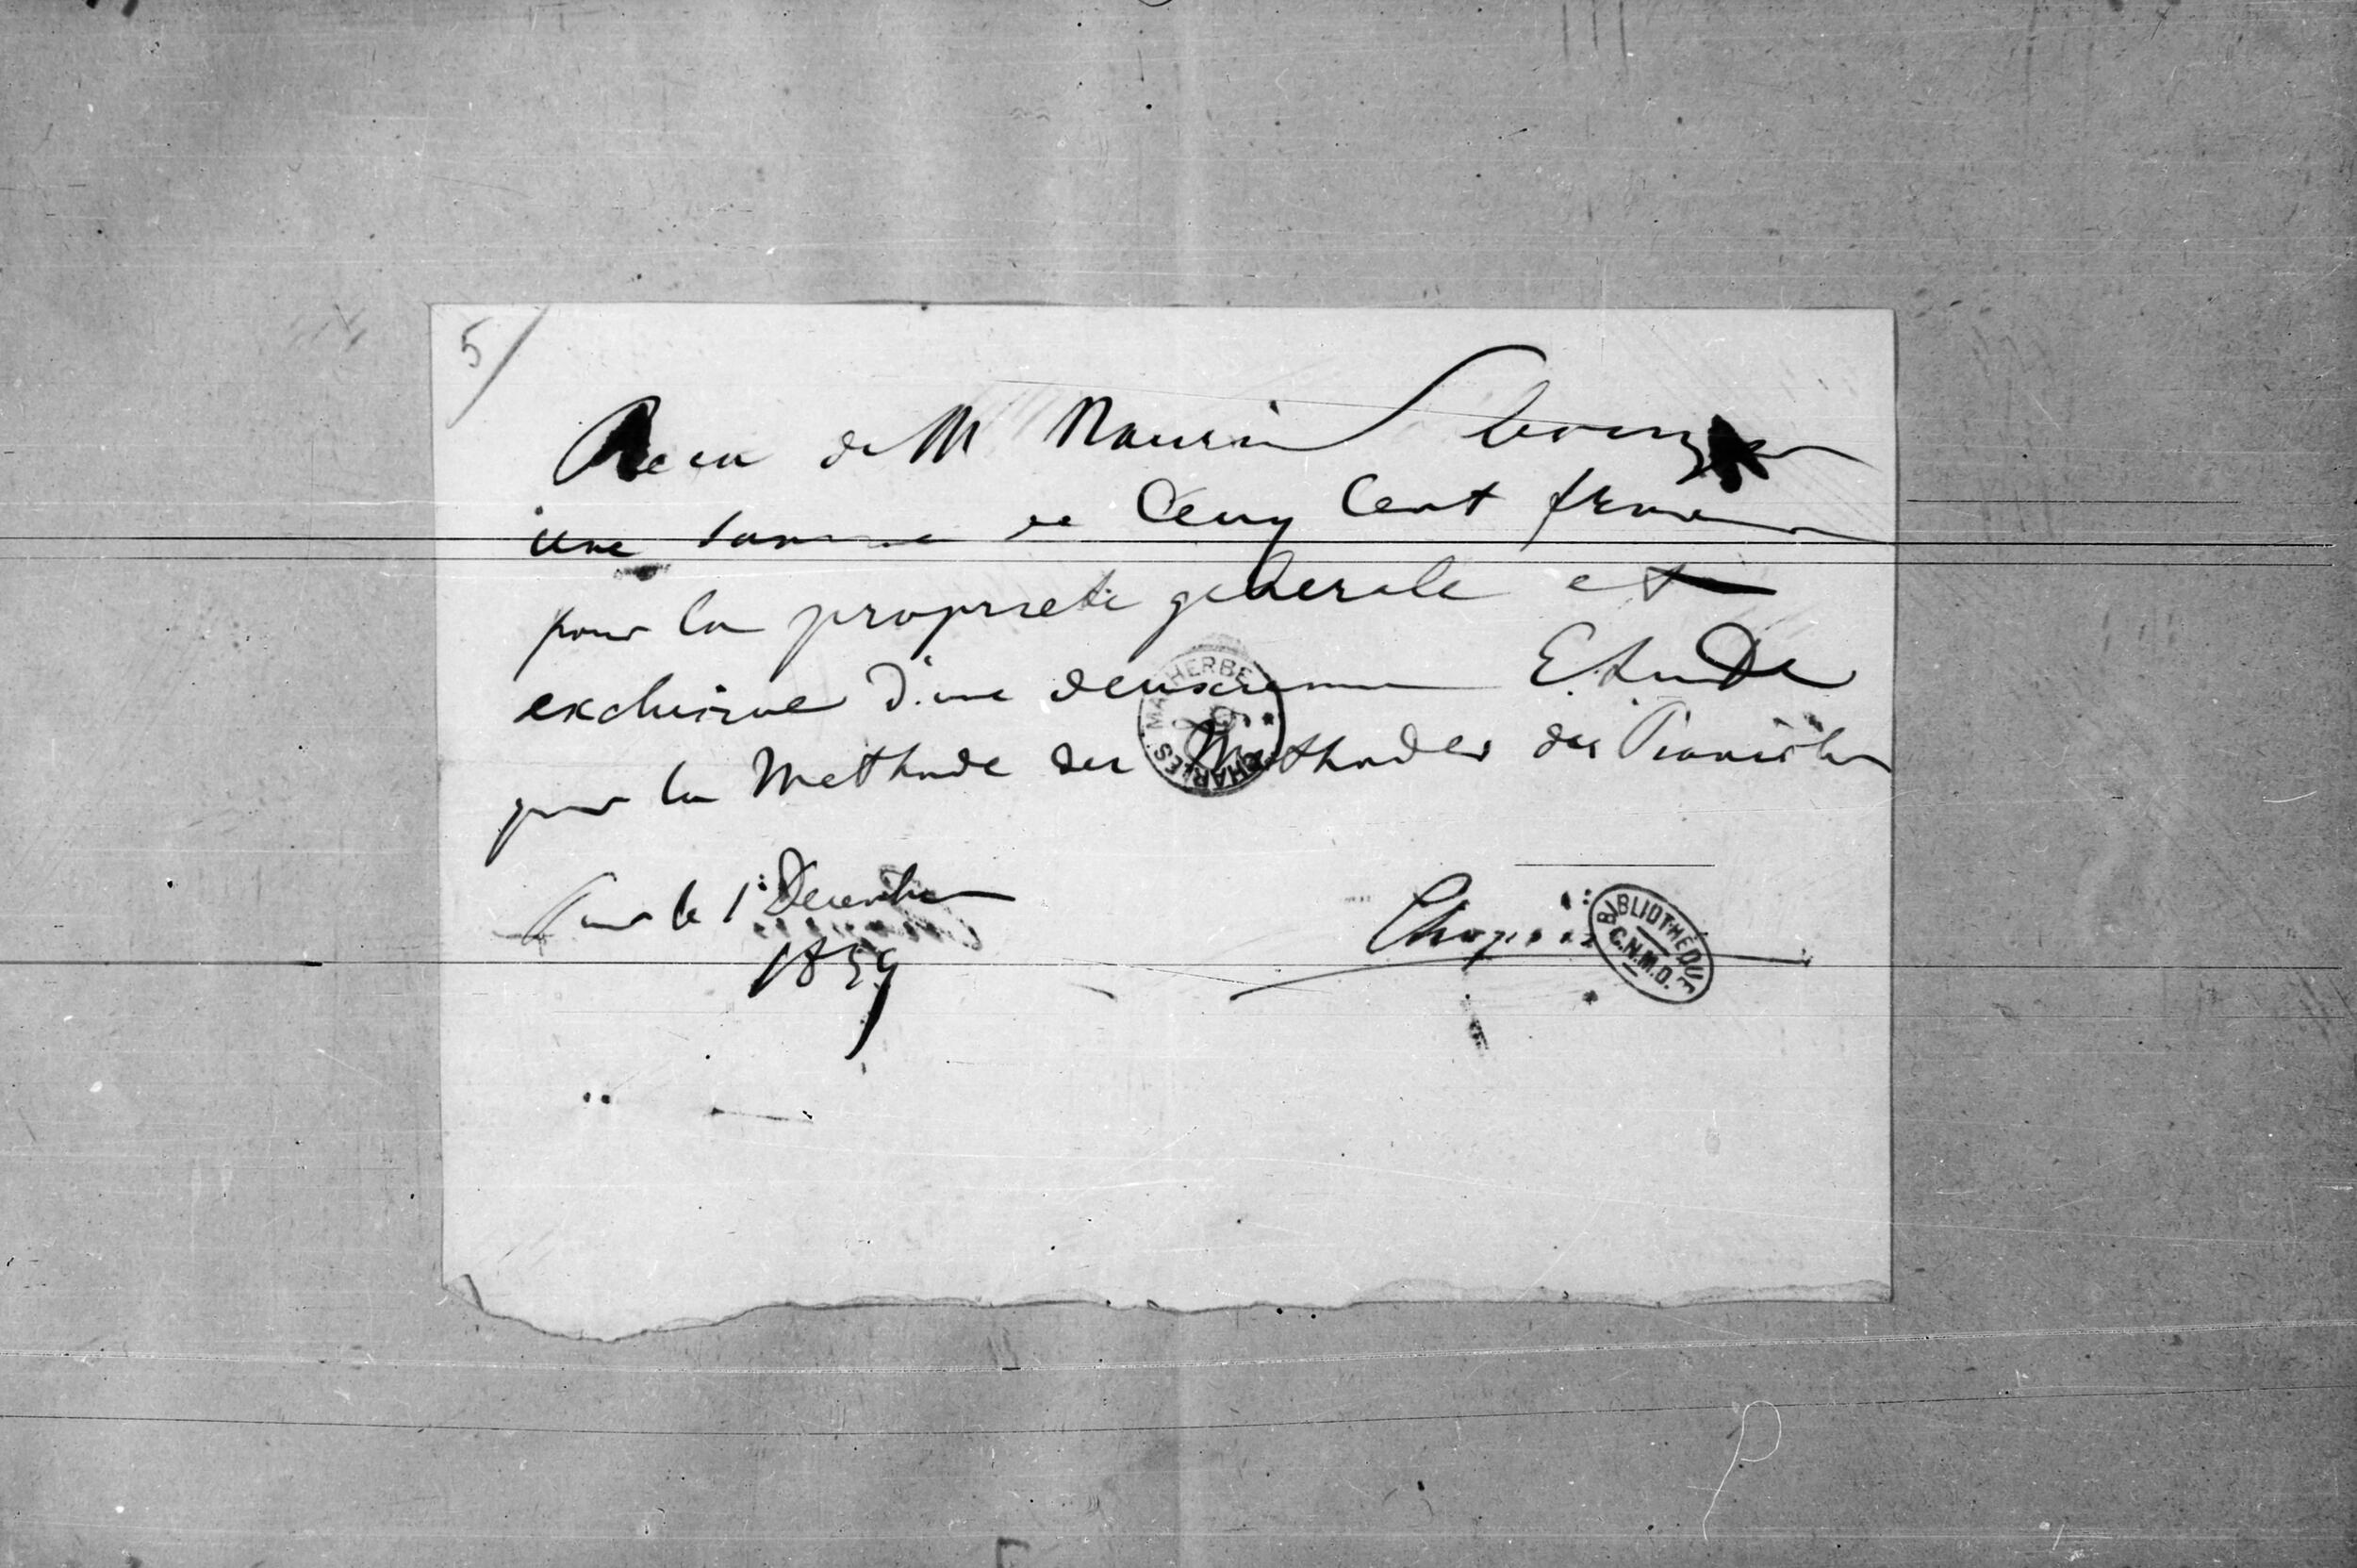 5/
Recu de M Maurice Schlesinger
une somme de Cinq Cent francs
pour la propriete generale et
exclusive d'une deuxieme Etude
pour la Methode des Methodes des Pianistes
CHARLES MALHERBE
Paris le 1r Decembre
1839
Chopin
BIBLIOTHÉQUE
C.N.M.D.